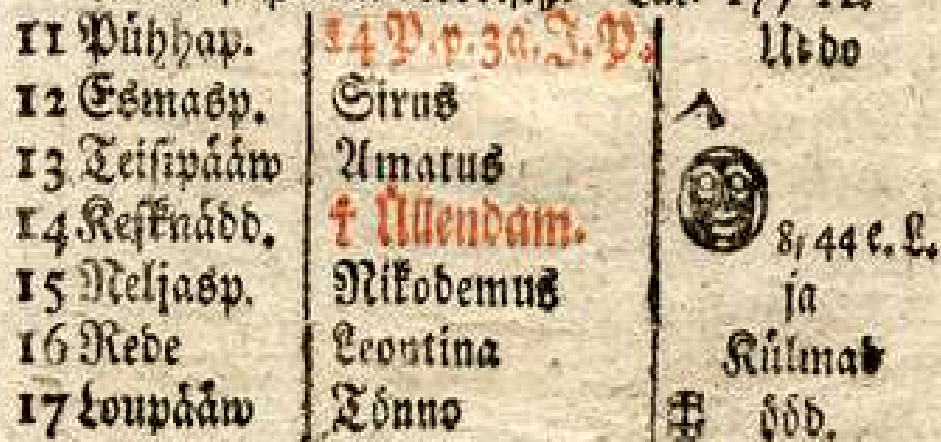 11 Pühhap. 14 P. p. 3a. J. P. Udo
12 Esmasp. Sirus
13 Teisipääw Amatus
14 Kesknädd. † Üllendam. 8, 44 e. L.
15 Neljasp. Nikodemus ja
16 Rede Leontina Külmad
17 Loupääw Tönno ööd.